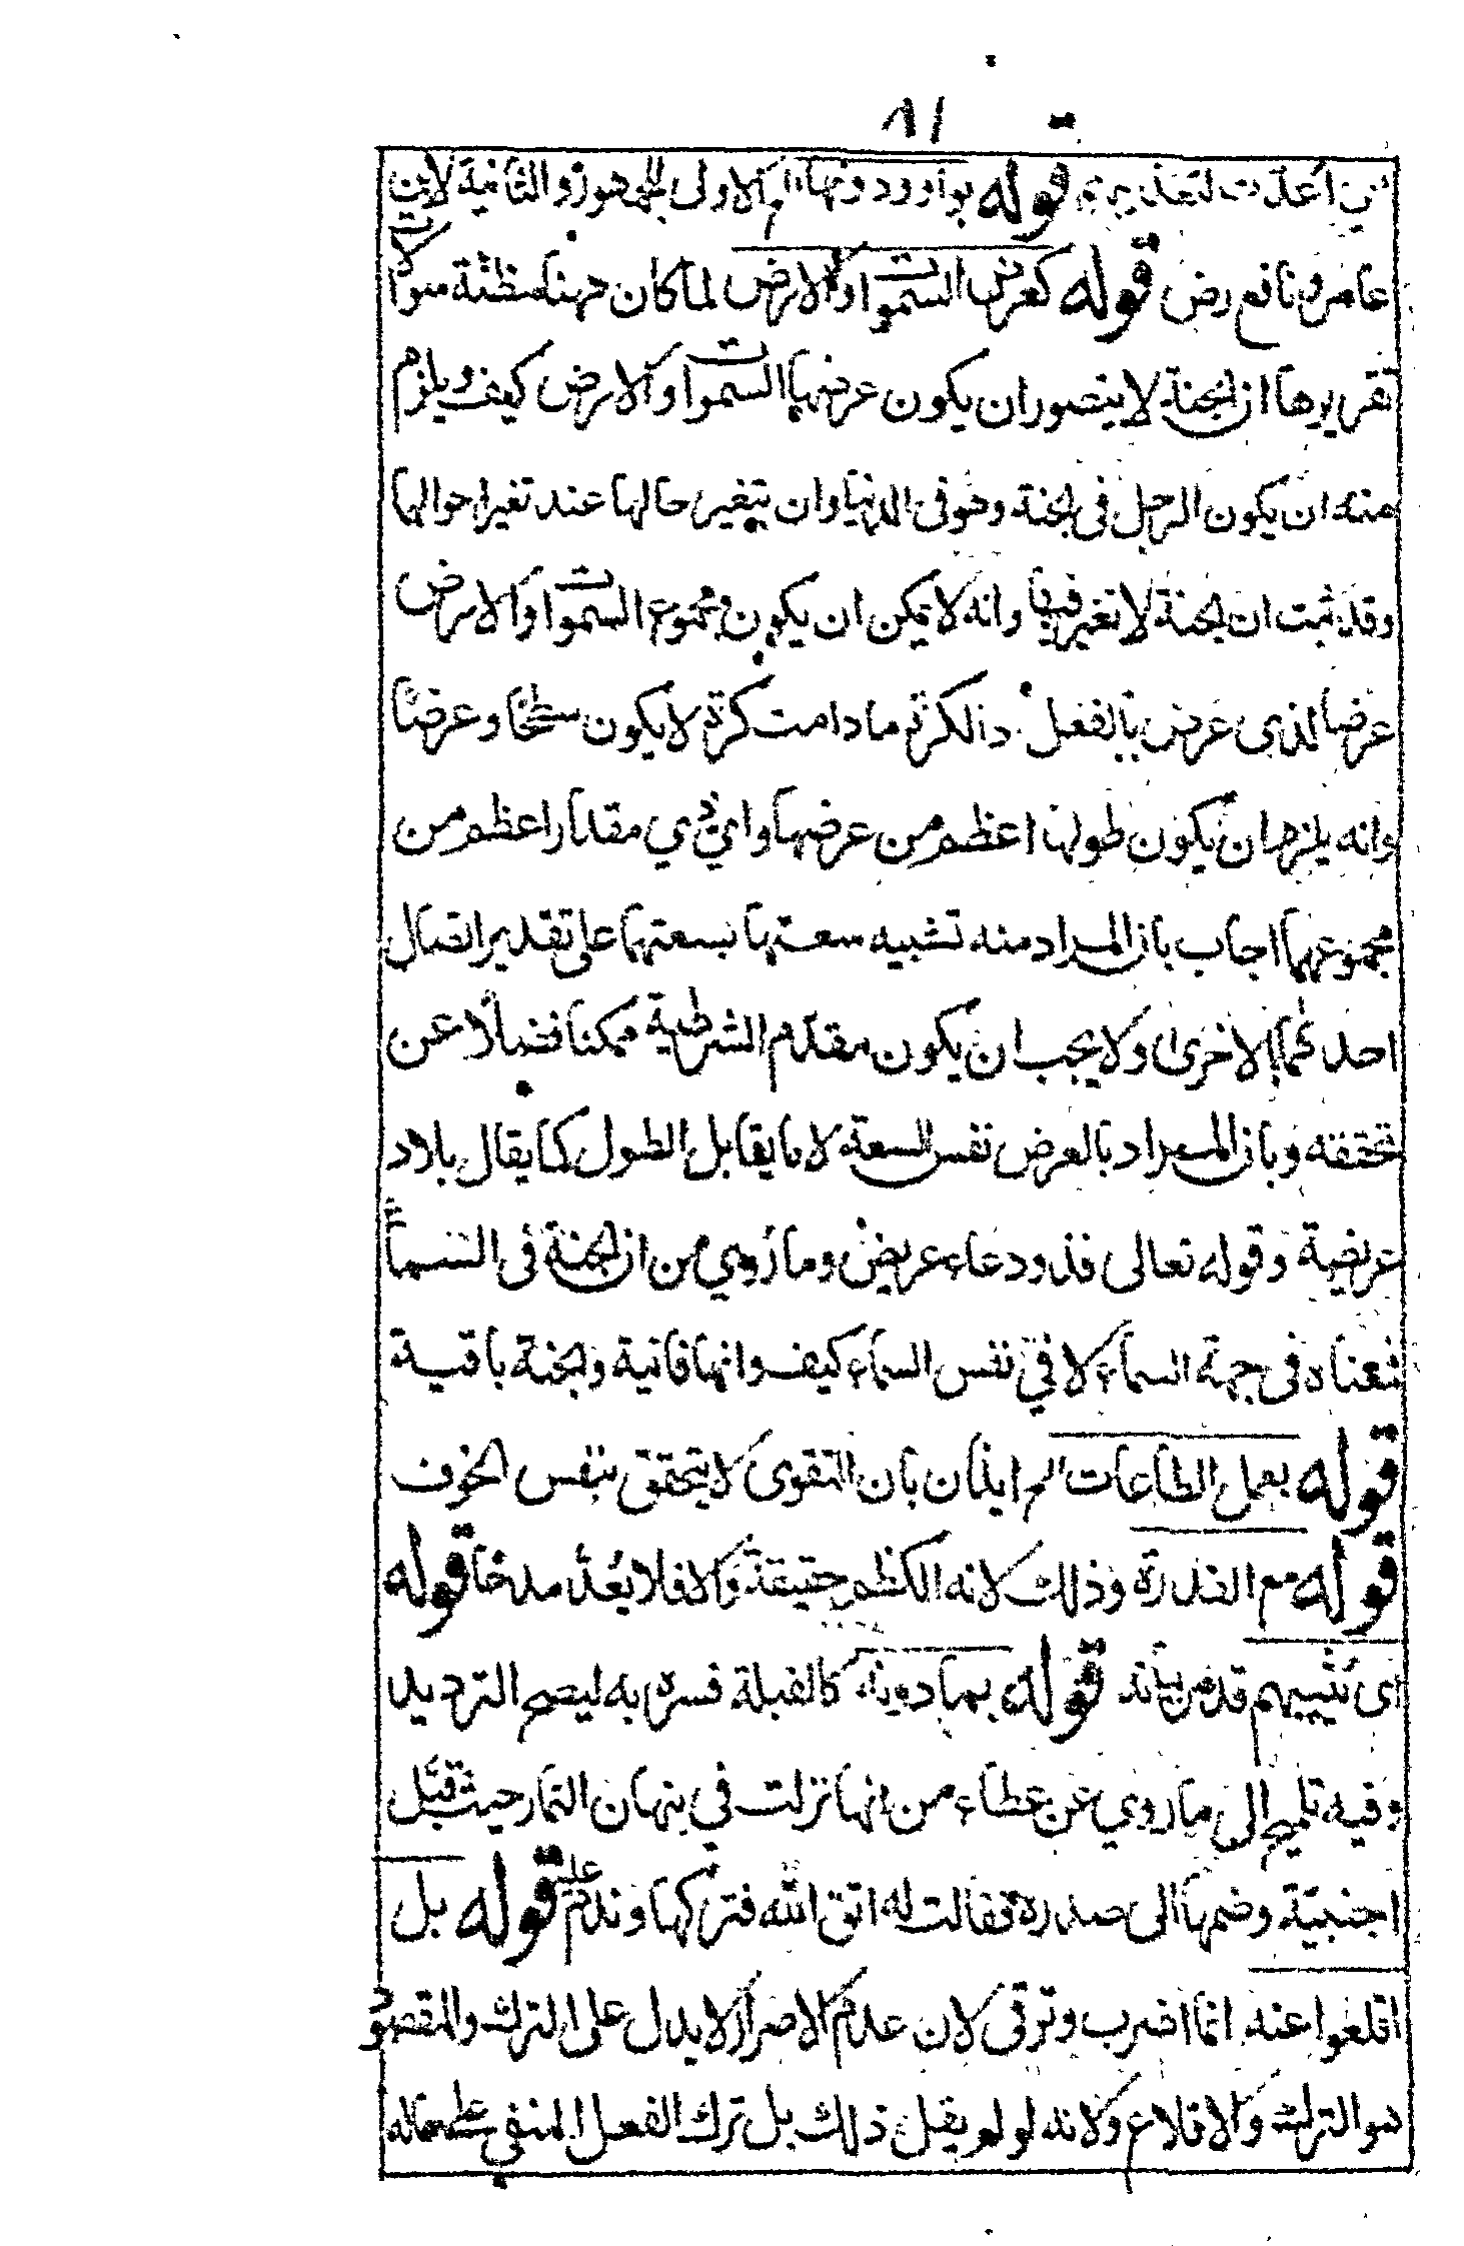 ٨١
اعدت لتعذيبهم قوله بواو ودونها الاولى للجمهور والثانية لابن
عامر ونافع رض قوله كعرض السموات والارض لما كان ههنا مظنة سوالات
تقريرها ان الجنة لا يتصور ان يكون عرضها السموات والارض كيف ويلزم
منه ان يكون الرجل فى الجنة وهو فى الدنيا وان يتغير حالها عند تغير احوالها
وقد ثبت ان الجنة لا تغير فيها وانه لا يمكن ان يكون مجموع السموات والارض
عرضا لذى عرض بالفعل اذ الكرة ما دامت كرة لا يكون سطحا وعرضا
وانه يلزم ان يكون طولها اعظم من عرضها واي شي مقدار اعظم من
مجموعهما اجاب بان المراد منه تشبيه سعتها بسعتهما على تقدير اتصال
احدلهما بالاخرى ولا يجب ان يكون مقدم الشرطية ممكنا فضلا عن
تحققه وبان المراد بالعرض نفس السعة لا ما يقابل الطول كما يقال بلاد
عريضة وقوله تعالى فذو دعاء عريض وما روي من ان الجنة فى السماء
فمعناه فى جهة السماء لا في نفس السماء كيف وانها فانية والجنة باقية
قوله بعمل الطاعات الم ايذان بان التقوى لا يتحقق بنفس الخوف
قوله مع القدرة وذلك لانه الكظم حقيقة والا فلا يعد مدحا قوله
اى يثيبهم قد مر بيانه قوله بما دونه كالقبلة فسره به ليصح الترديد
وفيه تلميح الى ما روي عن عطاء من انها نزلت في نبهان التمار حيث قبل
اجنبية وضمها الى صدره فقالت له اتق الله فتركها وندم عليه قوله بل
اقلعوا عنه انما اضرب وترقى لان عدم الاصرار لا يدل على الترك والمقصود
هو الترك والاقلاع ولانه لو لم يقل ذلك بل ترك الفعل المنفي على حاله